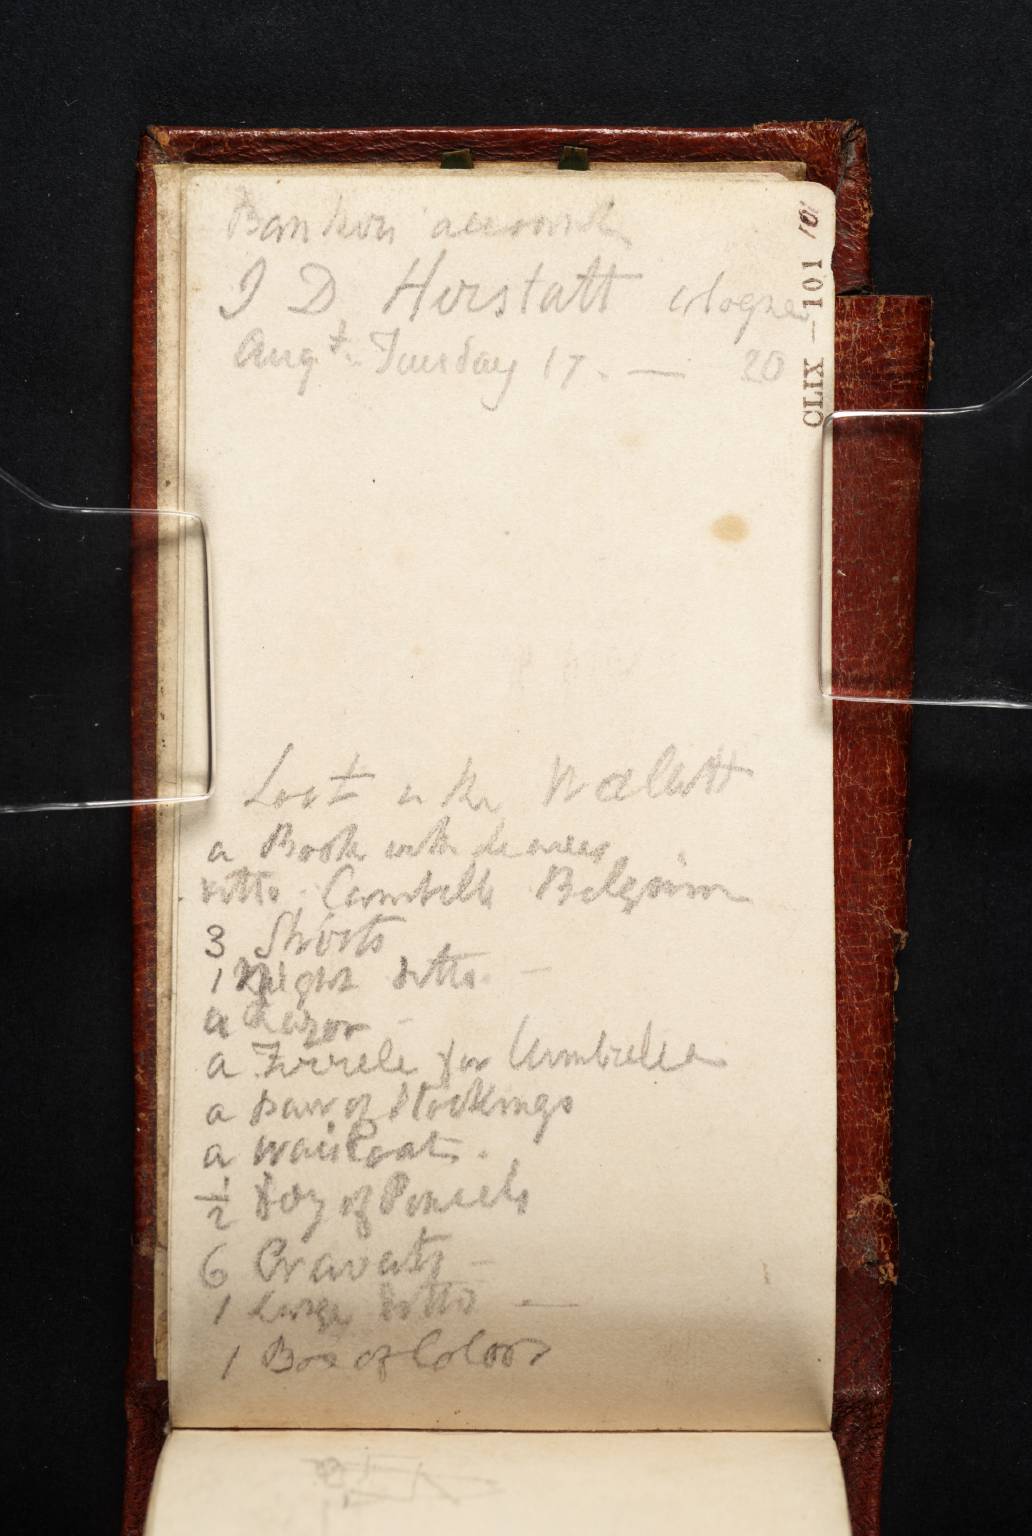 Bankers account
J D Herstatt Cologne
Augt. Tuesday 17. — 20
CLIX – 101
101
Lost in the Wallett
a Book with Leaves
ditto. Cambells Belgium
3 Shirts
1 Night ditto. —
a Razor –
a Ferrele for Umbrella
a pair of Stockings
a Waistcoat.
½ Doz of Pencils
6 Cravats –
1 Large ditto —
1 Box of Colors